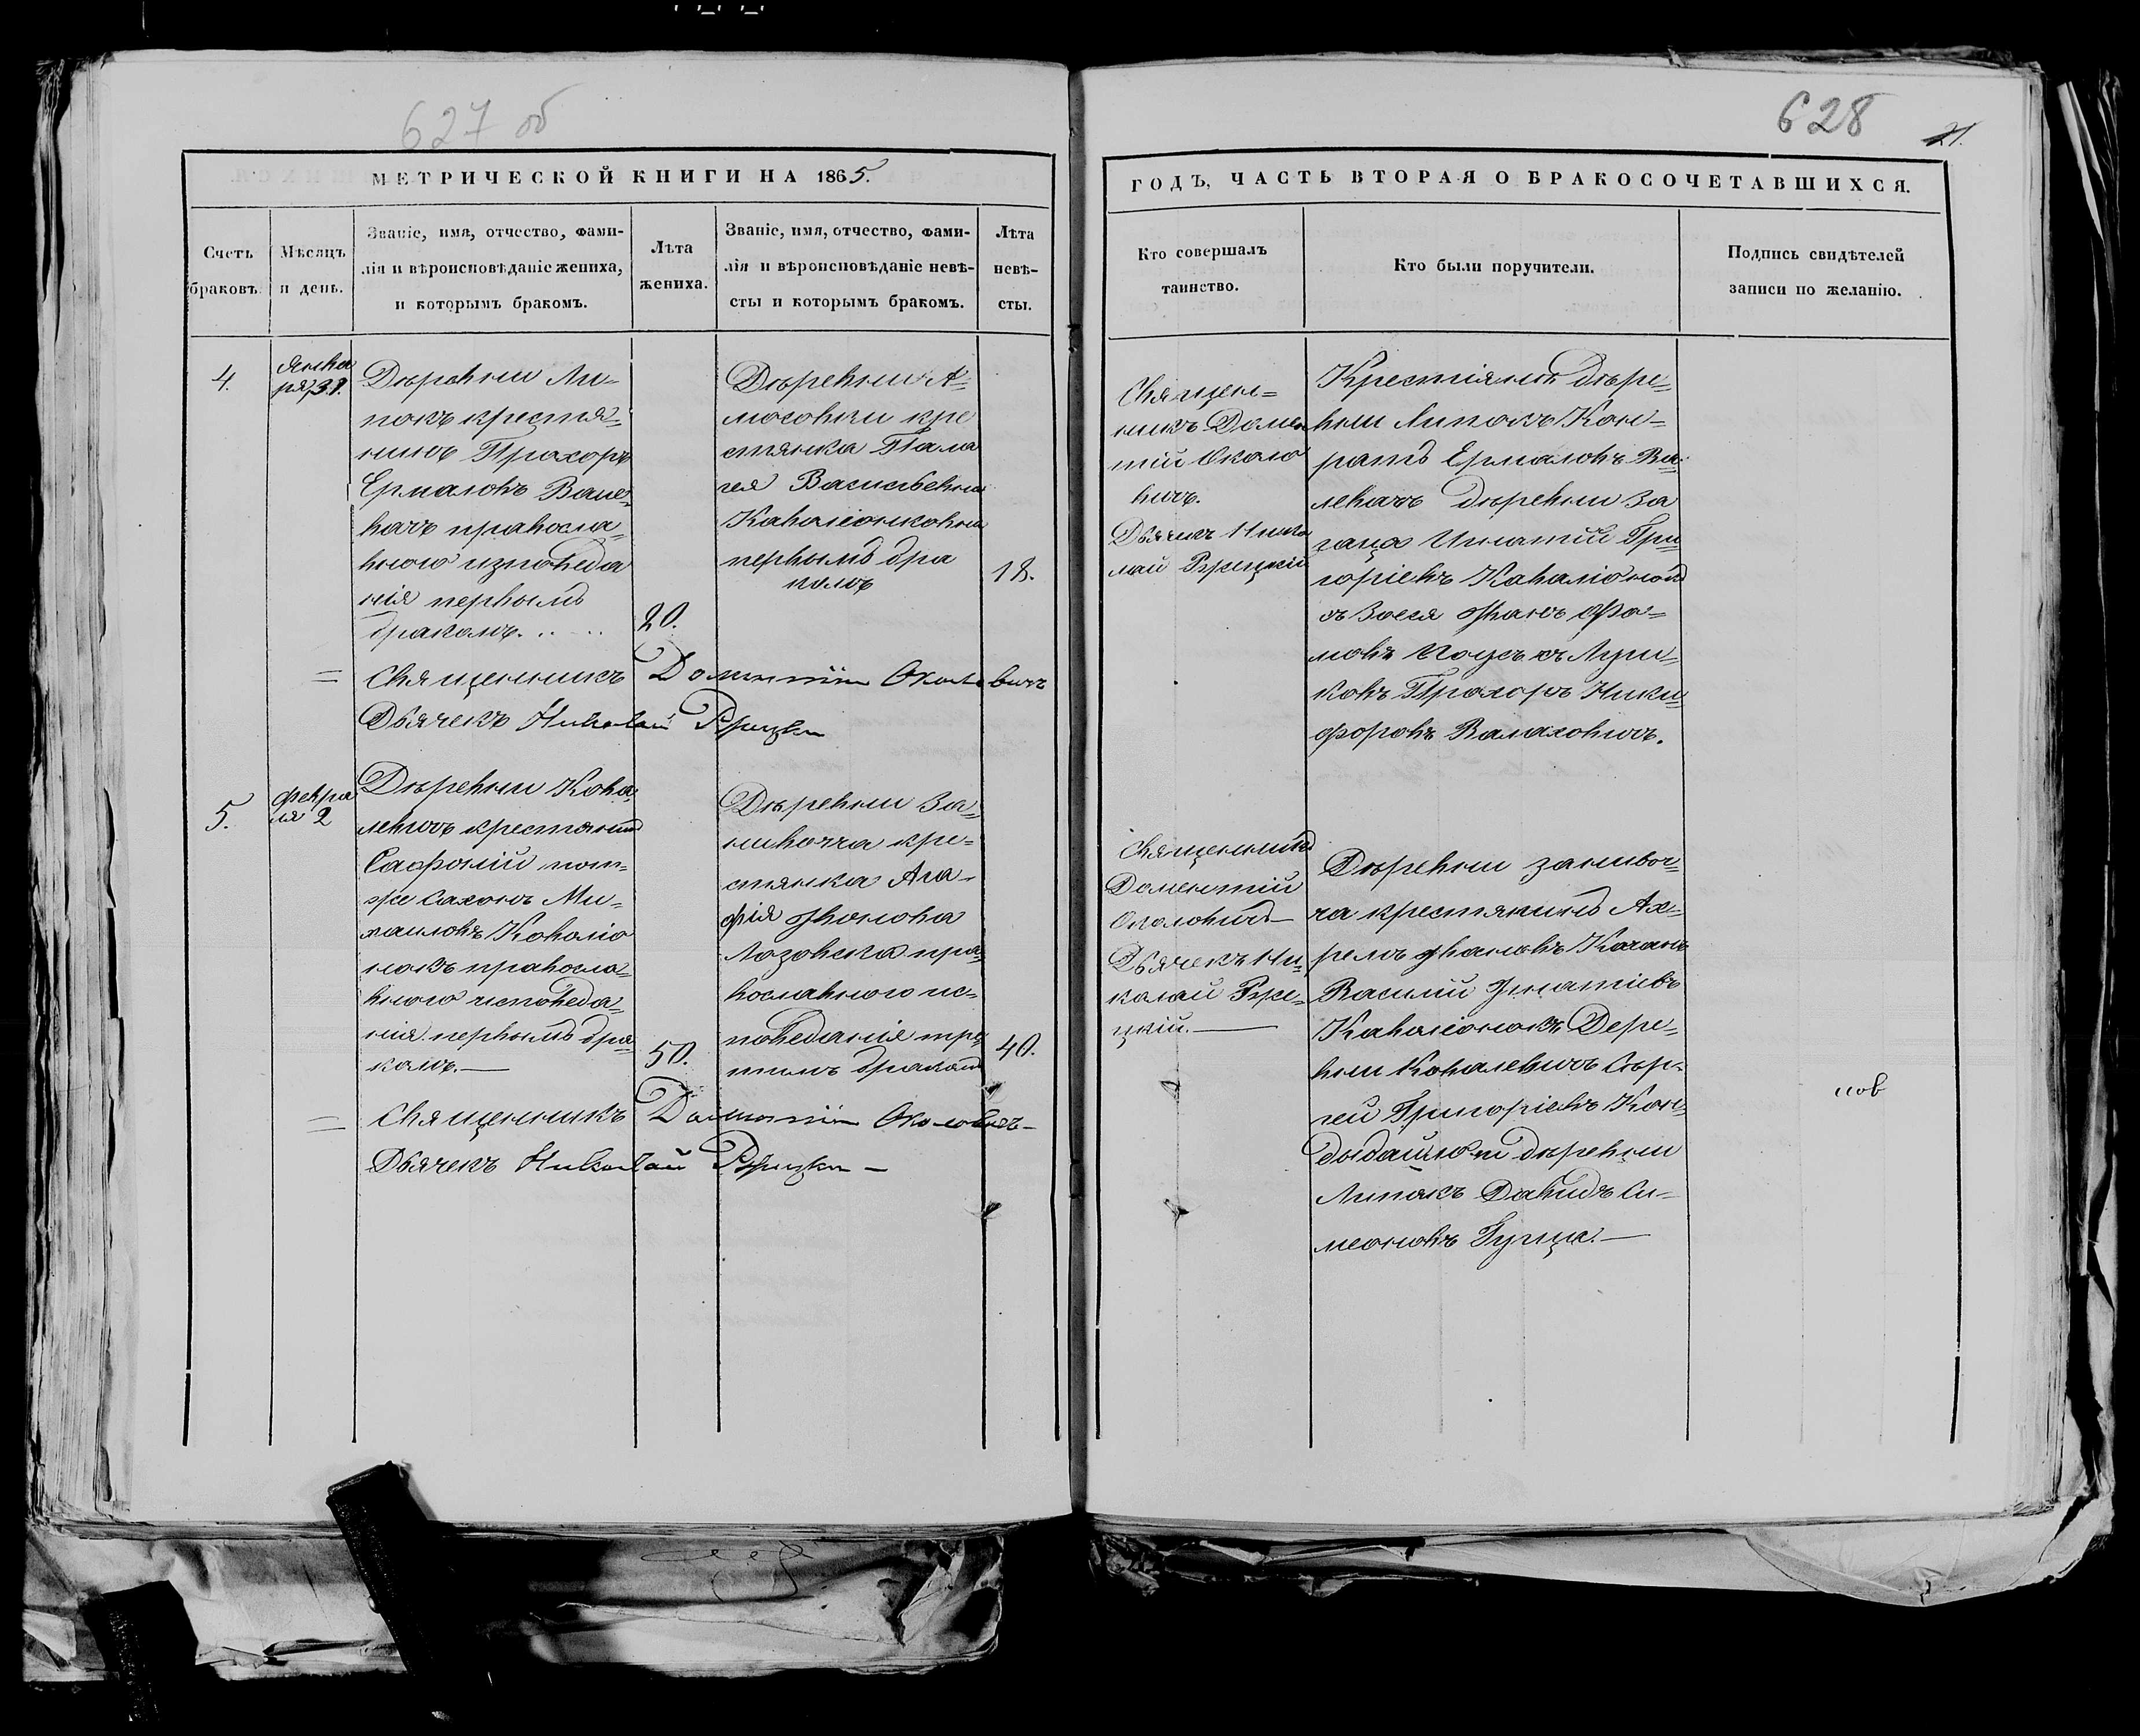 627 об
МЕТРИЧЕСКОЙ КНИГИ НА 1865.
Счетъ браковъ.
Мѣсяцъ и день.
Званіе, имя, отчество, фами-
лія и вѣроисповѣданіе жениха,
и которымъ бракомъ.
Лѣта
жениха.
Званіе, имя, отчество, фами-
лія и вѣроисповѣданіе невѣ-
сты и которымъ бракомъ.
Лѣта
невѣ-
сты.
4.
Янва
ря 31.
Дѣревни Ли-
покъ крестя-
нинъ Прохоръ
Ермаловъ
православ
ного изповеда
нія первымъ
бракомъ.
20.
Дѣревни А-
моговки кре
стянка Пала
гея Васильевна
Каваліонковна
первымъ бра
комъ
18.
Священникъ Доментіи Околовичъ
Дьячекъ Николай
5.
Февра
ля 2
Дѣревни Кова-
левичъ крестянинъ
Сафроній тот-
же Сахонъ Ми-
хаиловъ Коваліо
нокъ правосла-
вного исповеда-
нія первымъ бра-
комъ.
50.
Дѣревни За-
нивочча кре-
стянка Ага-
фія
Лозовска пра-
вославного ис-
поведанія тре-
тимъ бракомъ
40.
Священникъ Доментіи Околовичъ
Дьячекъ Николай
628
21.
ГОДЪ, ЧАСТЬ ВТОРАЯ О БРАКОСОЧЕТАВШИХСЯ.
Кто совершалъ
таинство.
Кто были поручители.
Подпись свидѣтелей
записи по желанію.
Священ-
никъ Домен
тій Околo
вичъ.
Дьячекъ Нико
лай
Крестіянинъ дѣре-
вни Липокъ Кон-
ратъ Ермаловъ Ва-
дѣревни За
Игнатій Гри
горіевъ Каваліонок
ъ
мовъ
ковъ Прохоръ Ники-
форовъ Валаховичъ.
Священникъ
Доментій
Околовичъ
Дьячекъ Ни-
колай
цкій.
Дѣревни занивоч-
ча крестянинъ Ах-
ремъ
Василій Игнатіевъ
Каваліонокъ Дере-
вни Ковалевичъ Сѣр-
гей Григоріевъ Кон-
дѣревни
Липокъ Давидъ Си-
меоновъ Гуща.